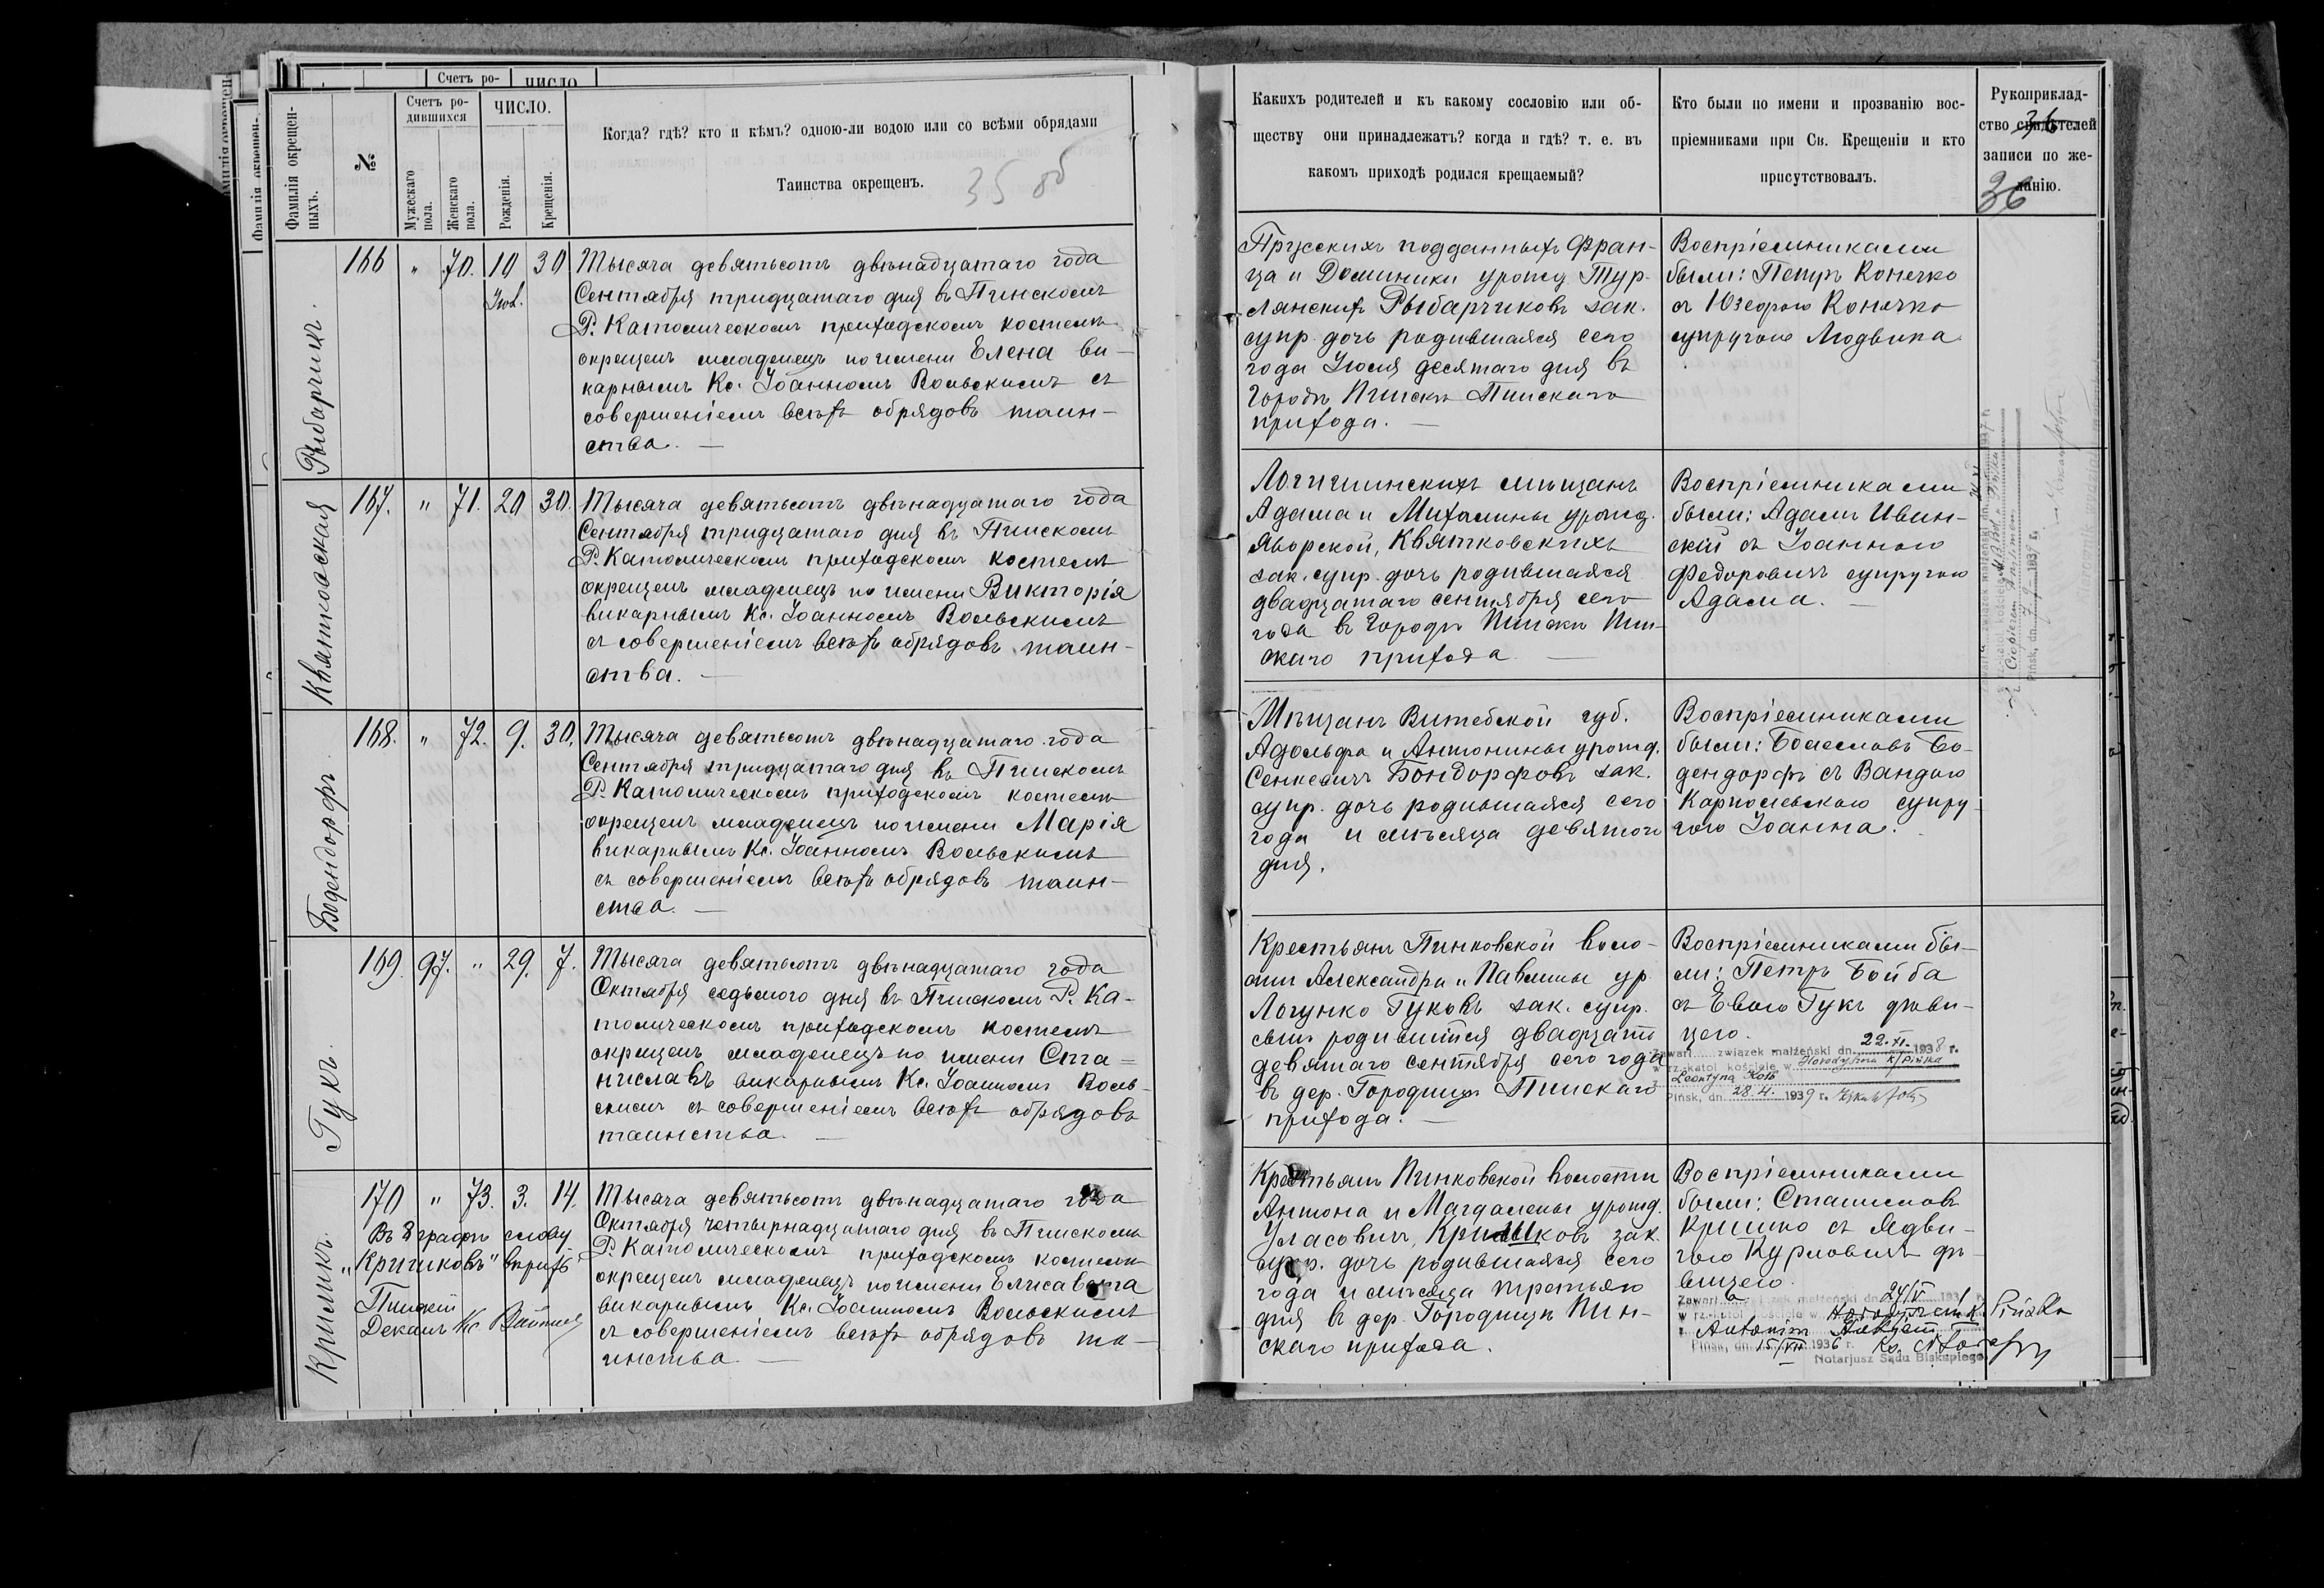 Счетъ ро-
ЧИСЛО
Фамилія окрещен-
ныхъ.
№
Счетъ ро-
дившихся
Мужескаго
пола.
Женскаго
пола.
ЧИСЛО.
Рожденія.
Крещенія.
Когда? гдѣ? кто и кѣмъ? одною-ли водою или со всѣми обрядами
Таинства окрещенъ.
35 об
Рыбарчикъ.
166 " 70. 10 30
Іюл.
Тысяча девятьсотъ двѣнадцатаго года
Сентября тридцатаго дня въ Пинскомъ
Р. Католическомъ приходскомъ костелѣ
окрещенъ младенецъ по имени Елена ви-
карнымъ Кс. Іоанномъ Вольскимъ съ
совершеніемъ всѣхъ обрядовъ таин-
ства. —
Квятковская
167. " 71. 20 30.
Тысяча девятьсотъ двѣнадцатаго года
Сентября тридцатаго дня въ Пинскомъ
Р. Католическомъ приходскомъ костелѣ
окрещенъ младенецъ по имени Викторія
викарнымъ Кс. Іоанномъ Вольскимъ
съ совершеніемъ всѣхъ обрядовъ таин-
ства. —
Бодендорфъ.
168. " 72. 9. 30.
Тысяча девятьсотъ двѣнадцатаго года
Сентября тридцатаго дня въ Пинскомъ
Р. Католическомъ приходскомъ костелѣ
окрещенъ младенецъ по имени Марія
викарнымъ Кс. Іоанномъ Вольскимъ
съ совершеніемъ всѣхъ обрядовъ таин-
ства. —
Гукъ.
169. 97. " 29. 7.
Тысяча девятьсотъ двѣнадцатаго года
Октября седьмого дня въ Пинскомъ Р. Ка-
толическомъ приходскомъ костелѣ
окрещенъ младенецъ по имени Ста=
ниславъ викарнымъ Кс. Іоанномъ Воль-
скимъ съ совершеніемъ всѣхъ обрядовъ
таинства. —
Криликъ.
170 " 73. 3. 14.
Въ графѣ слову
"Кричиковъ" вѣрить
Пинскій
Деканъ Кс
Тысяча девятьсотъ двѣнадцатаго года
Октября четырнадцатаго дня въ Пинскомъ
Р. Католическомъ приходскомъ костелѣ
окрещенъ младенецъ по имени Елисавета
викарнымъ Кс. Іоанномъ Вольскимъ
съ совершеніемъ всѣхъ обрядовъ та-
инства. —
Какихъ родителей и къ какому сословію или об-
ществу они принадлежатъ? когда и гдѣ? т. е. въ
какомъ приходѣ родился крещаемый?
Кто были по имени и прозванію вос-
пріемниками при Св. Крещеніи и кто
присутствовалъ.
Рукоприклад-
ство свидѣтелей
записи по же-
ланію.
36
36
Прусскихъ подданныхъ Фран-
ца и Доминики урожд Тур-
лянскихъ Рыбарчиковъ зак.
супр. дочь родившаяся сего
года Іюля десятаго дня въ
городѣ Пинскѣ Пинскаго
прихода. —
Воспріемниками
были: Петръ Конечко
съ Юзефою Конечко
супругою Людвика
Логишинскихъ мѣщанъ
Адама и Михалины урожд.
Яворской, Квятковскихъ
зак. супр. дочь родившаяся
двадцатаго сентября сего
года въ городѣ Пинскѣ Пин-
скаго прихода —
Воспріемниками
были: Адамъ Ивин-
скій съ Іоанною
Федоровичъ супругою
Адама. —
Мѣщанъ Витебской губ.
Адольфа и Антонины урожд.
Сенкевичъ Бондорфовъ зак.
супр. дочь родившаяся сего
года и мѣсяца девятого
дня.
Воспріемниками
были: Болеславъ Бо-
дендорфъ съ Вандою
супру-
гою Іоанна.
Крестьянъ Пинковской воло-
сти Александра и Павлины ур
Логунко Гуковъ зак. супр.
сынъ родившійся двадцать
девятаго сентября сего года
въ дер. Городище Пинскаго
прихода. —
Воспріемниками бы-
ли: Петръ Бойба
съ Евою Гукъ дѣви-
цею.
Zawarł związek małżeński dn. 22.XI. 1938 r.
w rz.-katol kościele w Horodyszczu k/Pińska
z Leontyną Koło
Pińsk, dn. 28.4. 1939 r.
Крестьянъ Пинковской волости
Антона и Магдалены урожд.
Уласовичъ, Криликовъ зак.
супр. дочь родившаяся сего
года и мѣсяца третьяго
дня въ дер. Городищѣ Пин-
скаго прихода.
Воспріемниками
были: Станиславъ
Кришко съ Ядви-
гою Курловичъ дѣ-
вицею.
Zawarła związek małżeński dn. 24/V 193 r.
w rz.-katol kościele w
z Antonim
Pińsk, dn. 15/VII 1936 r. Ks.
Notarjusz Sądu Biskupiego